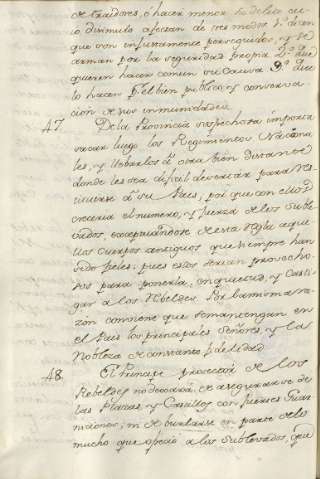 de traidores, ó hacer menor su delito cu-
io disimulo afectan de tres modos 1º. dicen
que son injustamente perseguidos, y se
arman por la seguridad propia 2º. que
quieren hacer comun su causa 3º. que
lo hacen pr. el bien publico, y conserva-
cion de sus inmunidades
47. De la Provincia sospechosa importa
sacar luego los Regimientos Naciona-
les, y llebarlos á otra bien distante
donde les sea dificil desertar para res-
tituirse á su Pais, pôr que con ellos
creceria el numero, y fuerza de los Suble-
bados exceptuandose de esta regla aque-
llos cuerpos antiguos que siempre han
sido fieles; pues estos serian provecho-
sos para ponerla, en quietud, y casti-
gar a los Rebeldes. Por la misma ra-
zón conviene que se mantengan en
el Pais los principales Señores, y la
Nobleza de constante fidelidad.
48. El Principe protector de los
Rebeldes no dexará de asegurarse de
las Plazas, y Castillos con fuertes Guar-
niciones; ni de burlarse en parte de lo
mucho que ofreció a los sublevados, que